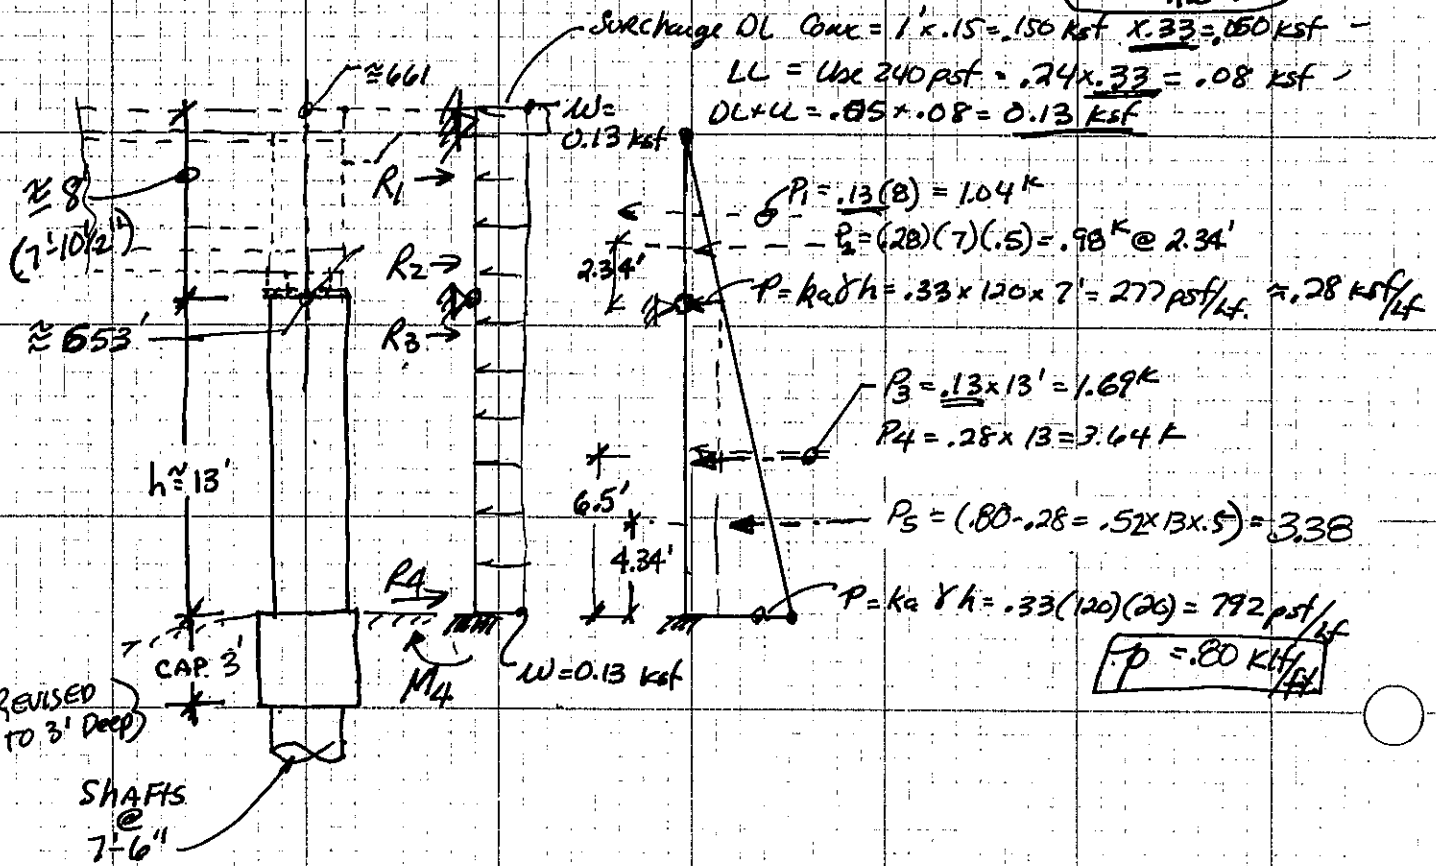 Surcharge DL Conc = 1' x .15 = .150 ksf x .33 = .050 ksf
LL = Use 240 psf = .24 x .33 = .08 ksf
DL+LL = .05 + .08 = 0.13 ksf
≈661
W=
0.13 ksf
≈ 8'
(7'-10 1/2")
R1
P1 = .13(8) = 1.04 K
P2 = (.28)(7)(.5) = .98 K @ 2.34'
R2
2.34'
P = ka γ h = .33 x 120 x 7' = 277 psf/Lf. ≈ .28 ksf/Lf
≈ 653'
R3
P3 = .13 x 13' = 1.69 K
P4 = .28 x 13 = 3.64 K
h ≈ 13'
6.5'
P5 = (.80-.28 = .52 x 13 x .5) = 3.38
4.34'
R4
P = ka γ h = .33(120)(20) = 792 psf/Lf
p = .80 Klf/ft.
CAP. 3'
M4
W=0.13 ksf
REVISED
TO 3' Deep)
SHAFTS
@
7'-6"